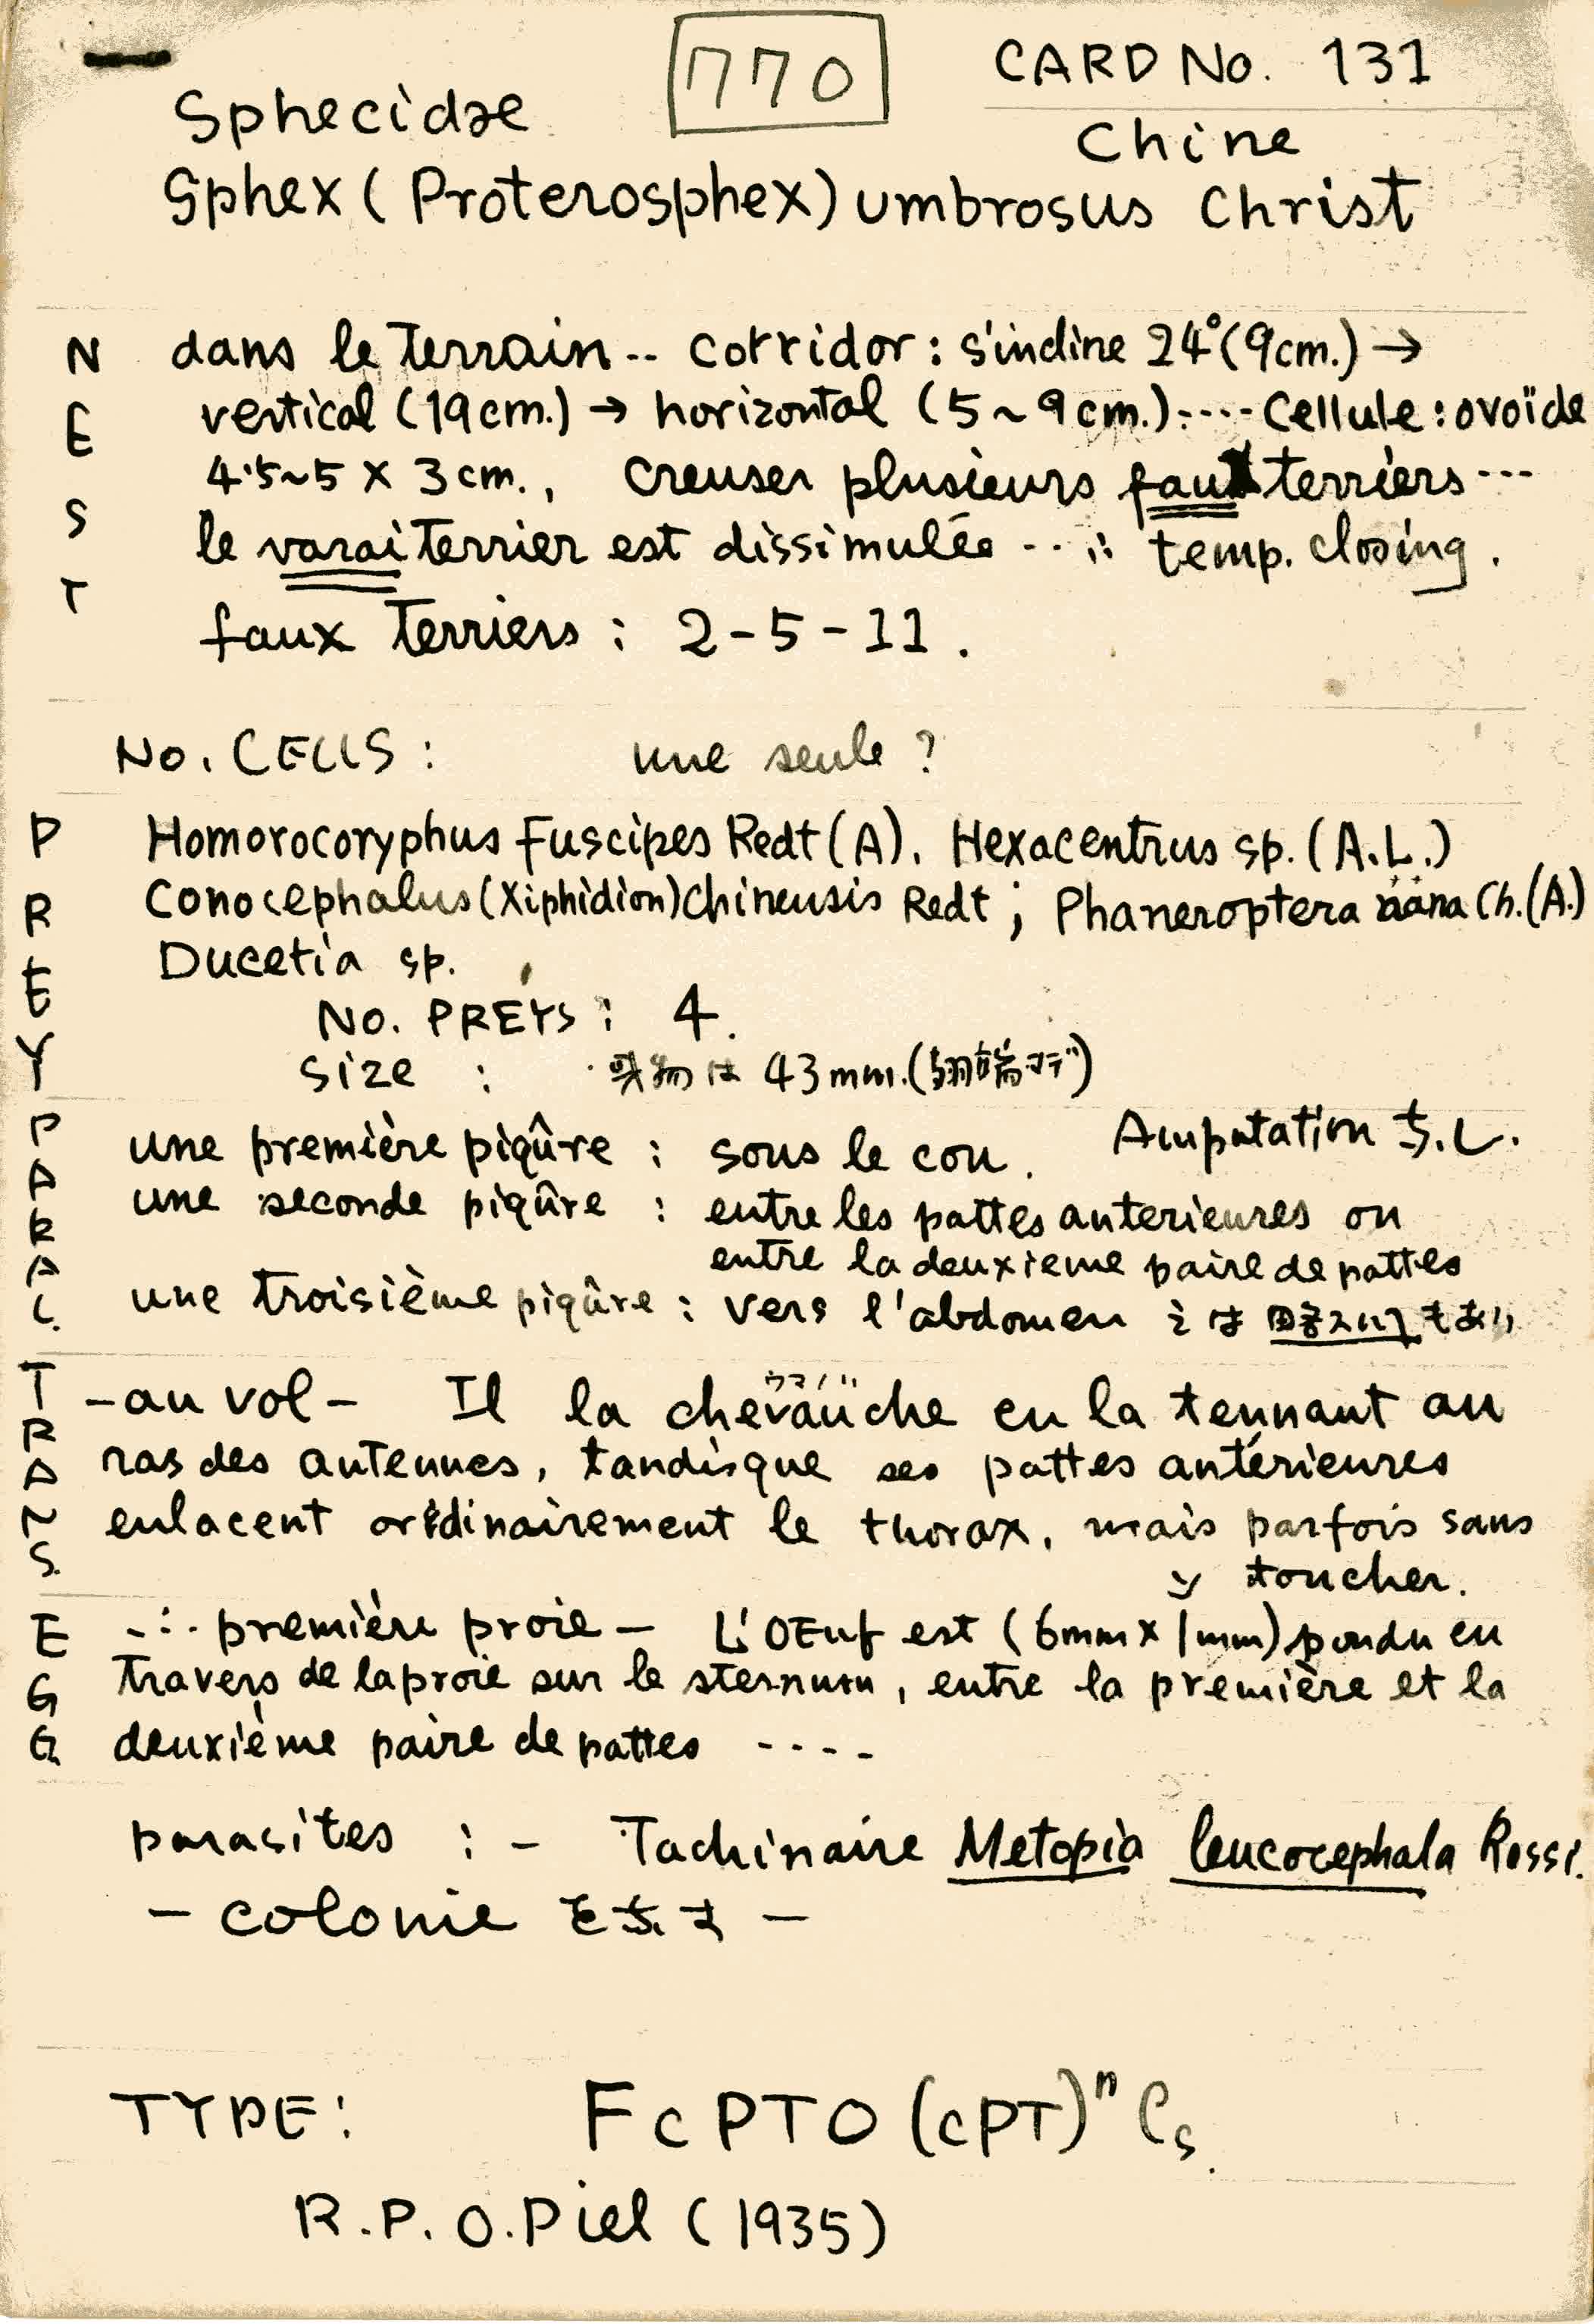 770
CARD No. 131
Sphecidae
Chine
Sphex (Proterosphex) umbrosus Christ
NEST
dans le terrain -- corridor : s'incline 24° (9cm.) →
vertical (19cm.) → horizontal (5~9cm.) :---- Cellule : ovoïde
4.5~5 × 3cm., creuser plusieurs faux terriers ---
le varai terrier est dissimulée --- ∴ temp. closing.
faux terriers : 2-5-11.
No. CELLS : une seule ?
PREY
Homorocoryphus Fuscipes Redt (A). Hexacentrus sp. (A.L.)
Conocephalus (Xiphidion) chinensis Redt ; Phaneroptera nana Ch. (A.)
Ducetia sp.
No. PREYS : 4.
size : 獲物は 43mm. (翅端マデ)
PARAL.
une première piqûre : sous le cou. Amputation ち.L.
une seconde piqûre : entre les pattes anterieures ou
entre la deuxieme paire de pattes
une troisième piqûre : vers l'abdomen もあり
TRANS.
- au vol - Il la chevauche en la tennant au
ウマノリ
ras des antennes, tandisque ses pattes antérieures
enlacent ordinairement le thorax, mais parfois sans
y toucher.
EGG
-∴ première proie - L'OEuf est (6mm × 1mm) pondu en
travers de la proie sur le sternum, entre la première et la
deuxième paire de pattes ----
parasites : - Tachinaire Metopia leucocephala Rossi.
- colonie -
TYPE : FcPTO (cPT)ⁿ Cs.
R.P. O. Piel (1935)